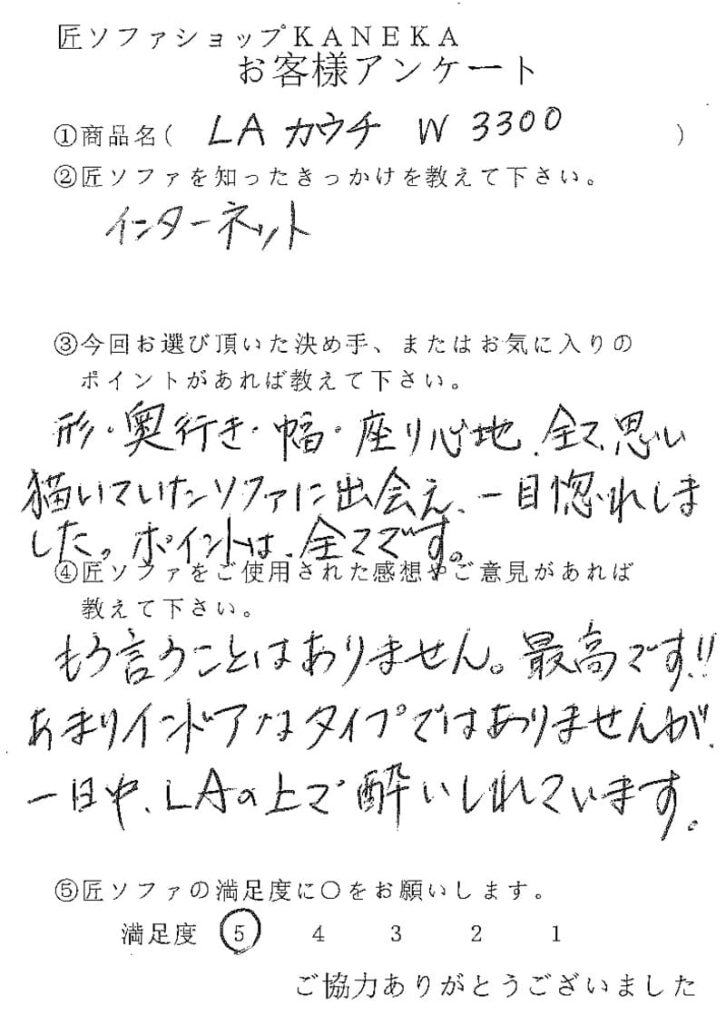 匠ソファショップKANEKA
お客様アンケート
①商品名( LAカウチ W 3300 )
②匠ソファを知ったきっかけを教えて下さい。
インターネット
③今回お選び頂いた決め手、またはお気に入りの
ポイントがあれば教えて下さい。
形・奥行き・幅・座り心地、全て、思い
描いていたソファに出会え、一目惚れしま
した。ポイントは、全てです。
④匠ソファをご使用された感想やご意見があれば
教えて下さい。
もう言うことはありません。最高です!!
あまりインドアなタイプではありませんが、
一日中、LAの上で酔いしれています。
⑤匠ソファの満足度に○をお願いします。
満足度 5 4 3 2 1
ご協力ありがとうございました